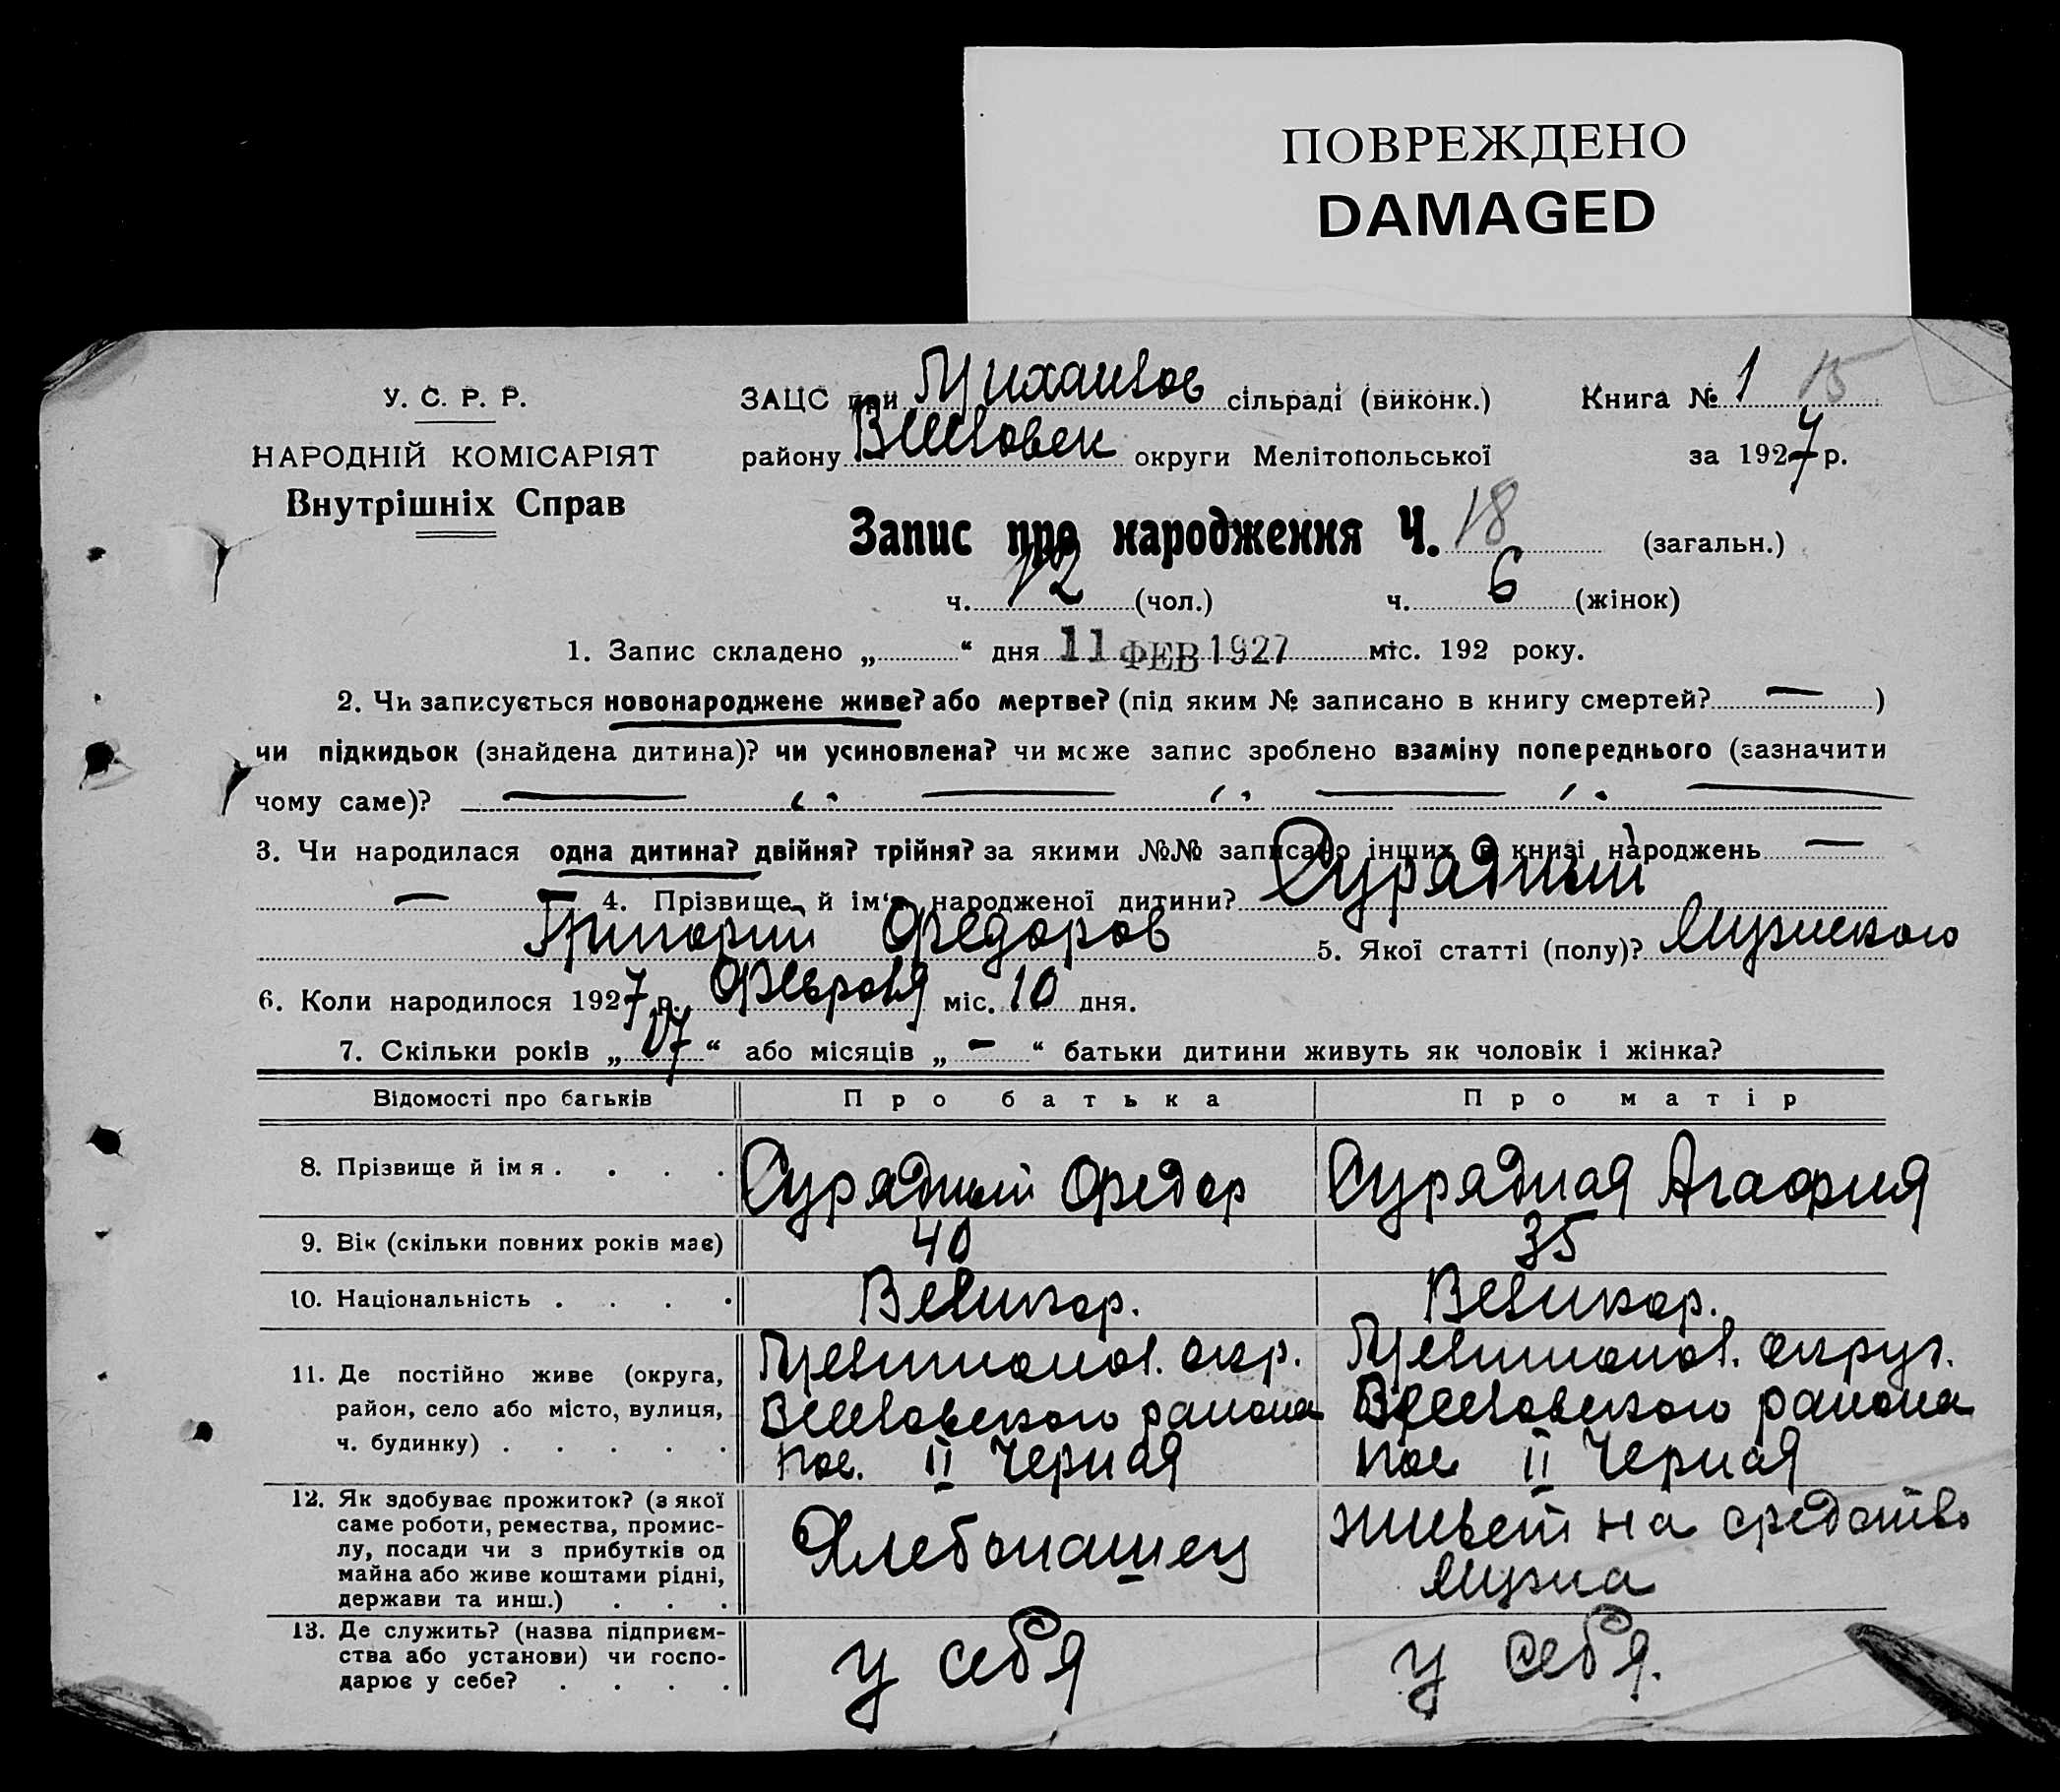 ПОВРЕЖДЕНО
DAMAGED
У. С. Р. Р.
НАРОДНІЙ КОМІСАРІЯТ
Внутрішніх Справ
ЗАЦС при Михайлов сільраді (виконк.) Книга № 1 15
району Веселовск округи Мелітопольської за 1927 р.
Запис про народження Ч. 18 (загальн.)
ч. 12 (чол.) ч. 6 (жінок)
1. Запис складено „ “ дня 11 ФЕВ 1927 міс. 192 року.
2. Чи записується новонароджене живе? або мертве? (під яким № записано в книгу смертей? — )
чи підкидьок (знайдена дитина)? чи усиновлена? чи може запис зроблено взаміну попереднього (зазначити
чому саме)? — — — —
3. Чи народилася одна дитина? двійня? трійня? за якими №№ записано інших в книзі народжень —
— 4. Прізвище й ім‘я народженої дитини? Сурядный
Григорий Федоров 5. Якої статті (полу)? Мужского
6. Коли народилося 1927 р. Февраля міс. 10 дня.
7. Скільки років „ 17 “ або місяців „ — “ батьки дитини живуть як чоловік і жінка?
Відомості про батьків Про батька Про матір
8. Прізвище й імя . . . . Сурядный Федор Сурядная Агафия
9. Вік (скільки повних років має) 40 35
10. Національність . . . . Великор. Великор.
11. Де постійно живе (округа, район, село або місто, вулиця, ч. будинку) . . . . . Мелитопол. окр. Мелитопол. округ.
Веселовского района Веселовского района
пос. II Черная пос II Черная
12. Як здобуває прожиток? (з якої саме роботи, ремества, промислу, посади чи з прибутків од майна або живе коштами рідні, держави та инш.) . . . Хлебопашец живет на средства
мужа
13. Де служить? (назва підприємства або установи) чи господарює у себе? . . . . у себя у себя.